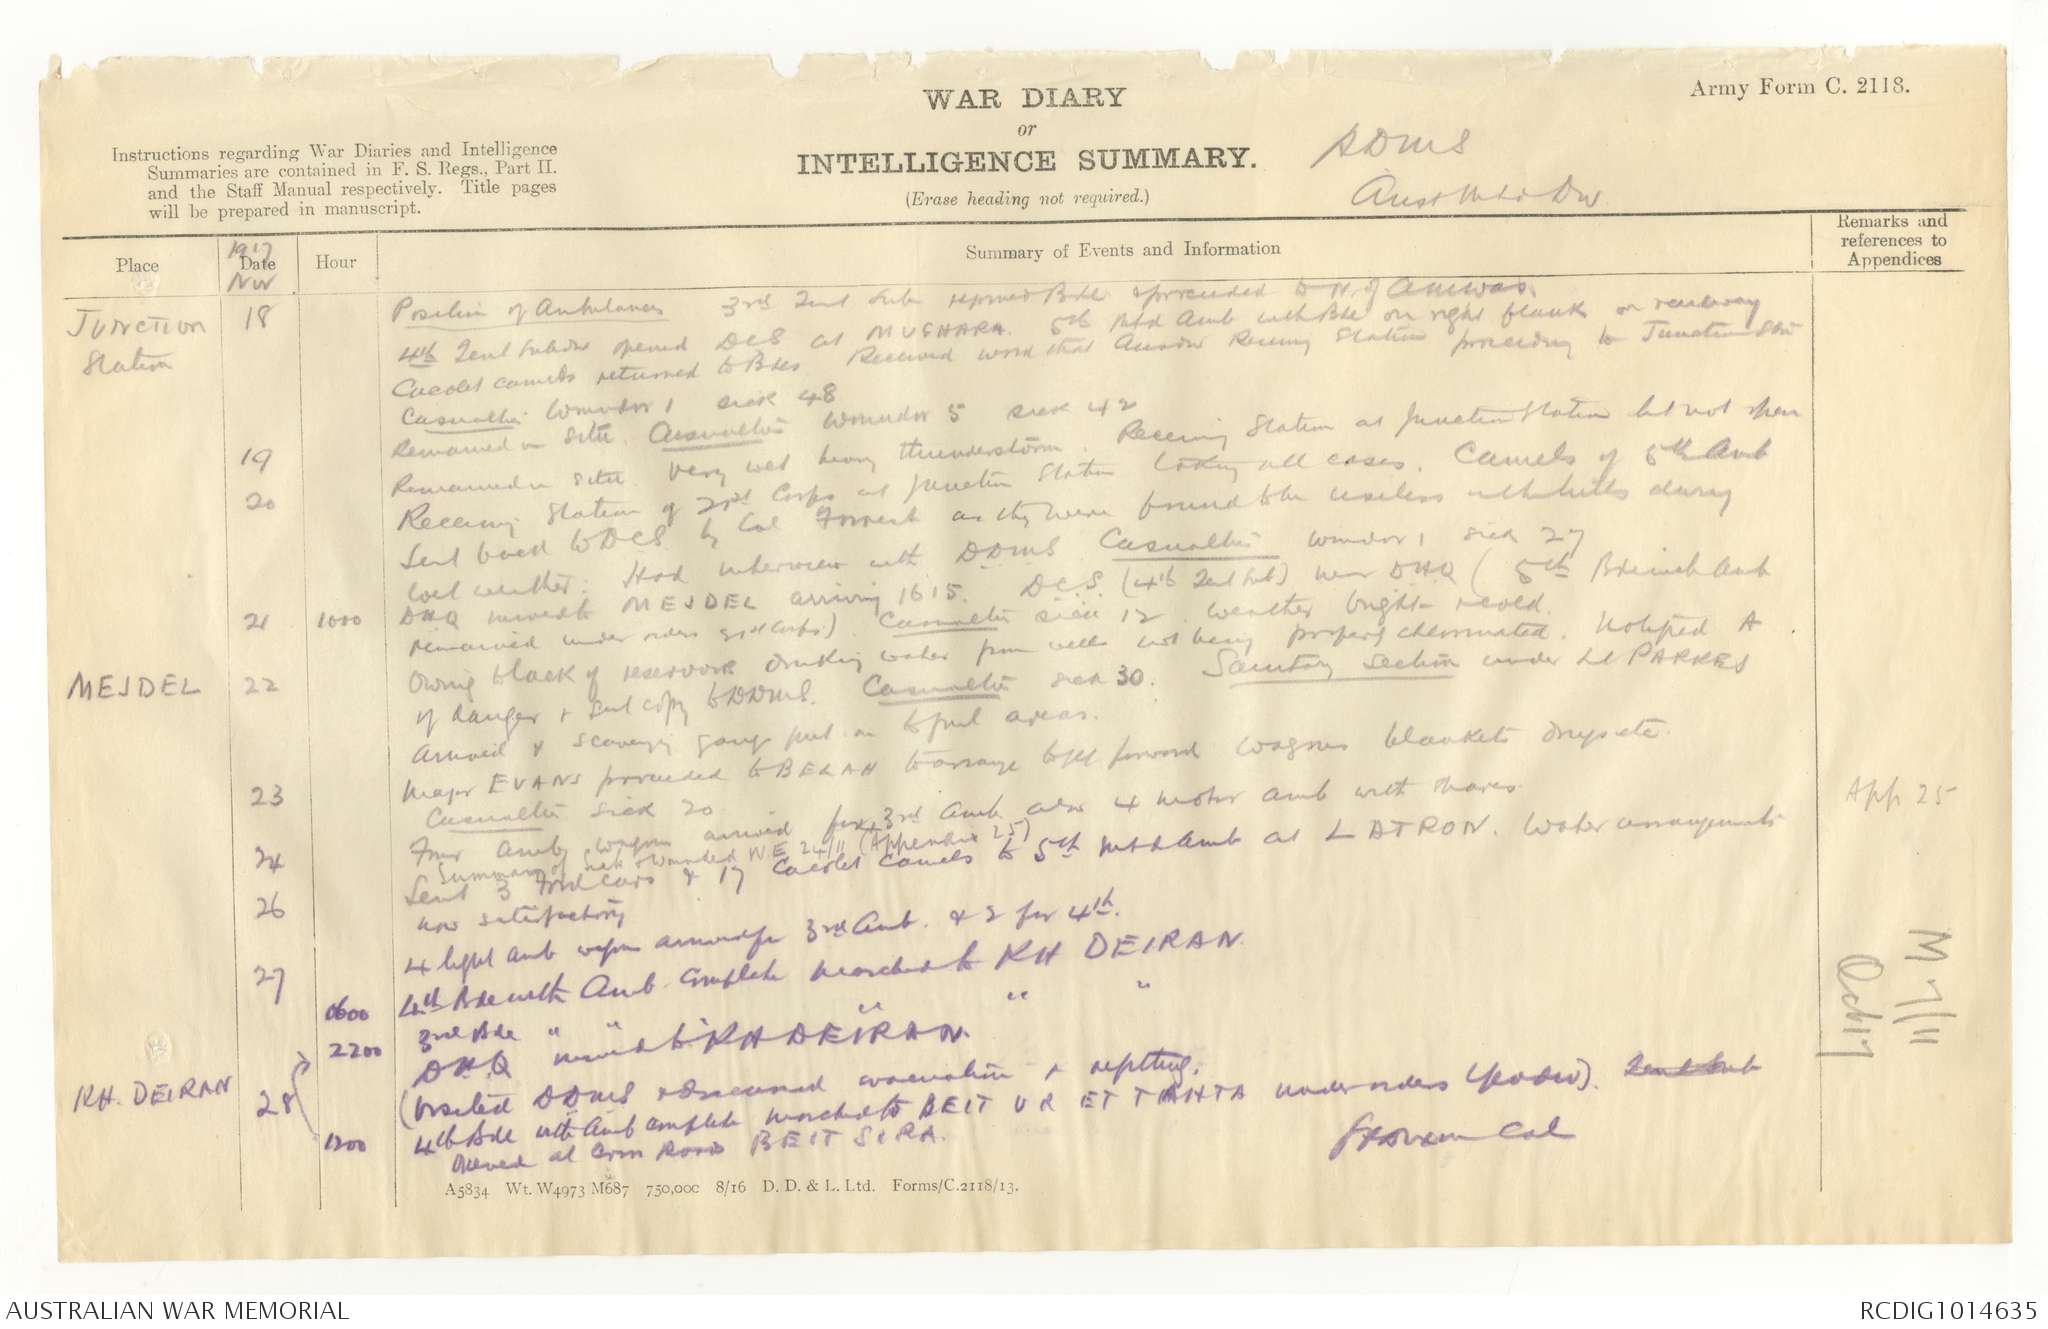 Army Form C. 2118.
WAR DIARY
or
INTELLIGENCE SUMMARY.
(Erase heading not required.)
Instructions regarding War Diaries and Intelligence
Summaries are contained in F. S. Regs., Part II.
and the Staff Manual respectively. Title pages
will be prepared in manuscript.
ADMS
Aust Mtd Div
Place
1917
Date
Nov
Hour
Summary of Events and Information
Remarks and
references to
Appendices
Junction
Station
18 Position of Ambulances 3rd Tent Sub rejoined Bde & proceeded to N. of Amwas.
4th Tent Subdiv opened DCS at MUGHARA. 5th Mtd Amb with Bde on right flank on railway
Cacolet camels returned to Bdes. Received word that Anzac Receiving Station proceeding to Junction Stn
Casualties Wounded 1 sick 48
19 Remained in situ. Casualties Wounded 5 sick 42
20 Remained in situ. Very wet heavy thunderstorm. Receiving Station at Junction Station but not open
Receiving Station of 21st Corps at Junction Station taking all cases. Camels of 5th Amb
Sent back to DCS by Col Forrest as they were found to be useless in the hills during
wet weather. Had interview with DDMS. Casualties wounded 1 sick 27
21 1000 DHQ moved to MEJDEL arriving 1615. DCS. (4th Tent Sub) near DHQ (5th Amb
remained under orders Corps) Casualties sick 12. Weather bright & cold.
MEJDEL 22 Owing to lack of reservoirs drinking water from wells not being properly chlorinated. Notified A
of danger & sent copy to DDMS. Casualties sick 30. Sanitary Section under Lt PARKES
arrived & scavenging gangs put on to foul areas.
23 Major EVANS proceeded to BELAH to arrange to get forward wagons blankets drugs etc.
Casualties sick 20.
24 Four amb. wagons arrived for 3rd Amb. also 4 motor amb with
Summary of Sick & Wounded WE 24/11 (Appendix 25)
App 25
26 Sent 3 Ford cars & 17 Cacolet Camels to 5th Mtd Amb at LATRON. Water arrangements
now satisfactory
27 4 light amb wagons arrived for 3rd Amb. & 2 for 4th.
0600 4th Bde with Amb. complete marched to KH DEIRAN.
2200 3rd Bde " " " " "
KH. DEIRAN 28 DHQ moved to KH DEIRAN.
(Visited DDMS & discussed evacuation & refitting.
1200 4th Bde with Amb complete marched to BEIT UR ET TAHTA under orders Yeo Div). Tent Sub
opened at Cross Roads BEIT SIRA.
Col
M 7/11
Oct 17
A5834 Wt. W4973 M687 750,000 8/16 D. D. & L. Ltd. Forms/C.2118/13.
AUSTRALIAN WAR MEMORIAL
RCDIG1014635